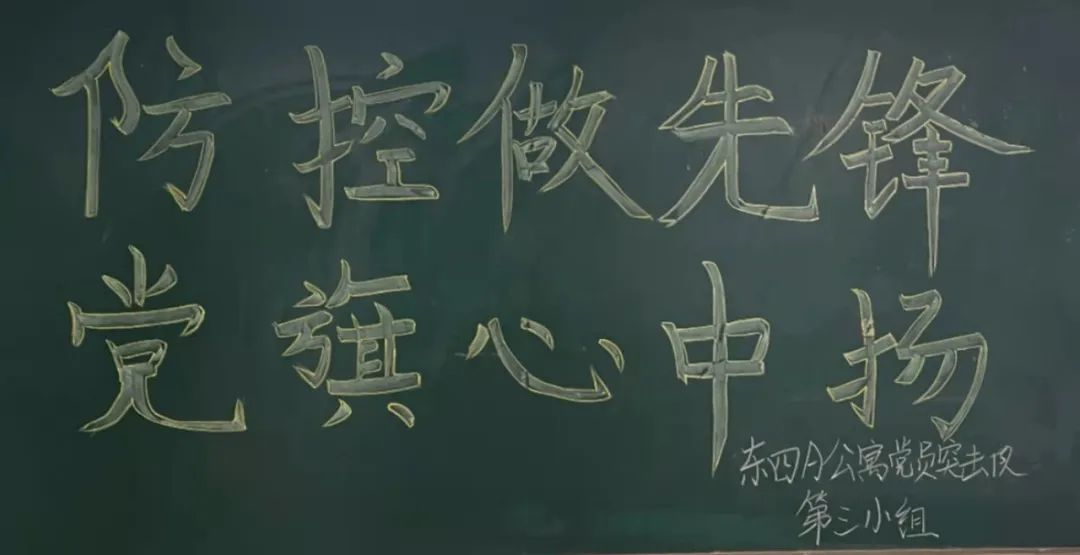 防控做先锋
党旗心中扬
东四A公寓党员突击队
第三小组